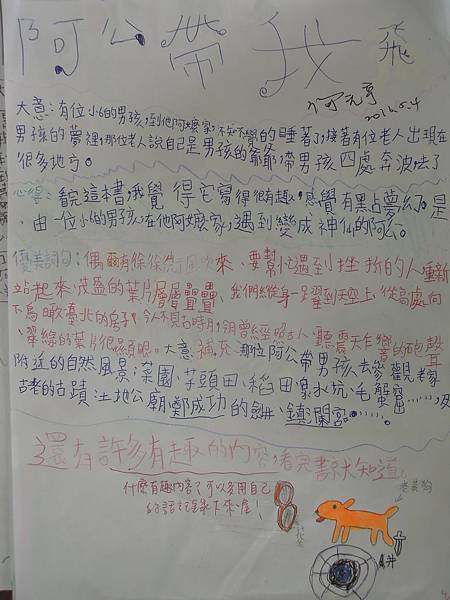 阿公帶我飛
何元亨
大意：有位小6的男孩，到他阿嬤家，不知不覺的睡著了，接著有位老人出現在
男孩的夢裡，那位老人說自己是男孩的爺爺，帶男孩四處奔波，去了
很多地方。
心得：看完這本書我覺得它寫得很有趣，感覺有點占夢幻。是
由一位小6的男孩，在他阿嬤家，遇到變成神仙的阿公。
優美詞句：偶爾有徐徐微風吹來、要幫忙遇到挫折的人重新
站起來、茂盛的葉片層層疊疊、我們縱身一躍到天空上，從高處向
下鳥瞰臺北的房子、今人不見古時月，明月曾經照古人、聽震天作響的砲聲、
翠綠的葉片很顯眼。大意補充：那位阿公帶男孩去參觀老家
附近的自然風景：菜園、芋頭田、稻田、泉水坑、毛蟹窩……及
古老的古蹟：土地公廟、鄭成功的劍井、鎮瀾宮……。
還有許多有趣的內容，看完書就知道
什麼有趣內容？可以多用自己
的話記錄下來喔！
老黃狗
劍井